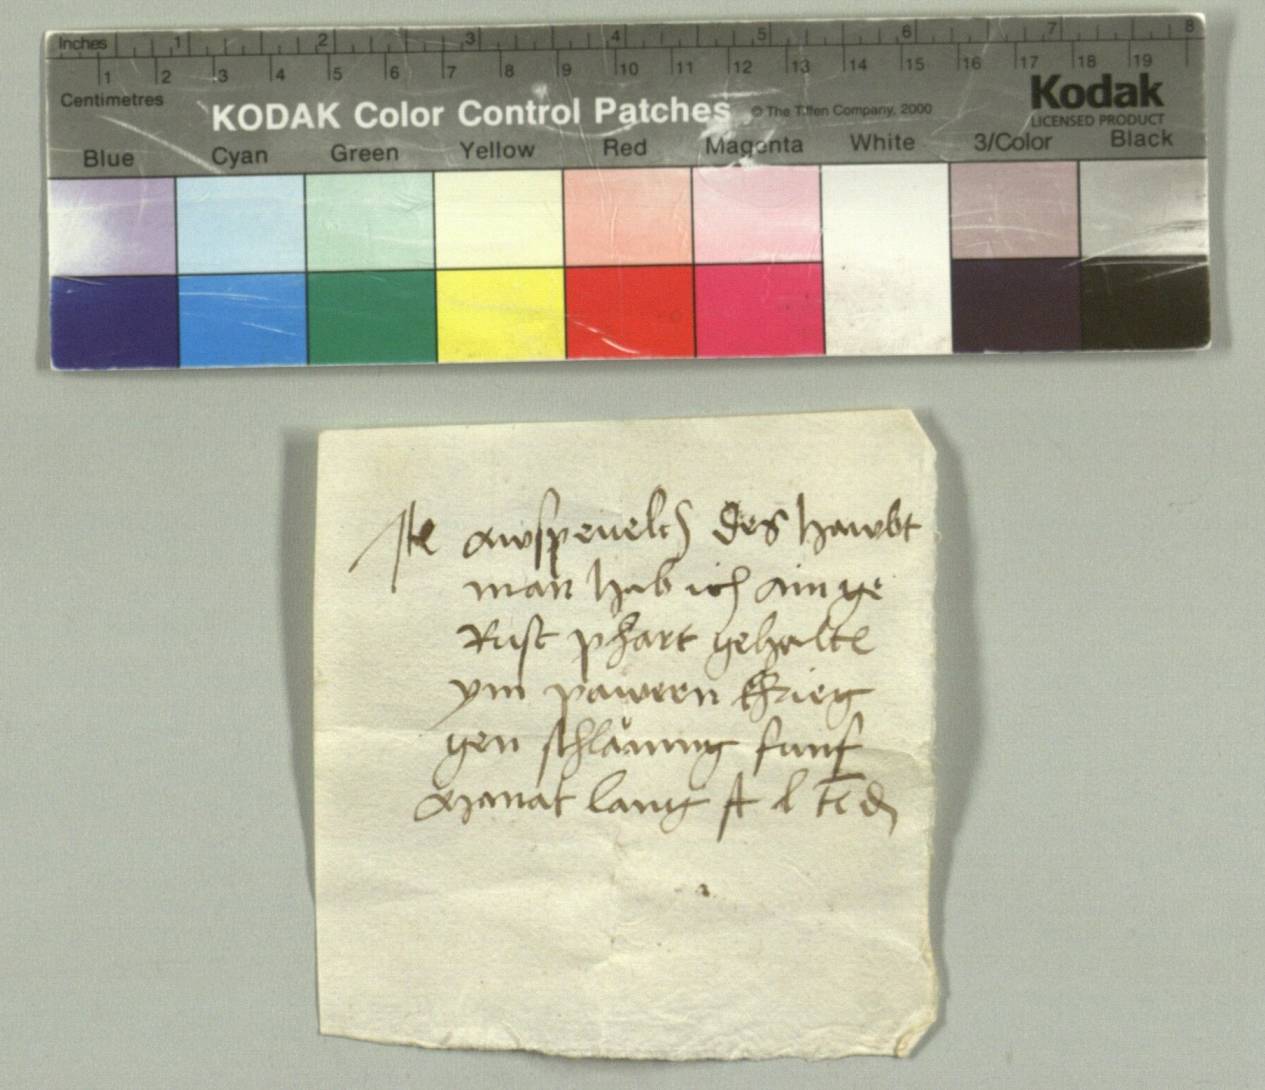 Inches 1 2 3 4 5 6 7 8
1 2 3 4 5 6 7 8 9 10 11 12 13 14 15 16 17 18 19
Centimetres
KODAK Color Control Patches © The Tiffen Company, 2000 Kodak
LICENSED PRODUCT
Blue Cyan Green Yellow Red Magenta White 3/Color Black
Ite awspeuelch des hawbt
man hab ich ain ge
Rust phart gehalte
ym pawern Krieg
gen schläning funf
manat lang